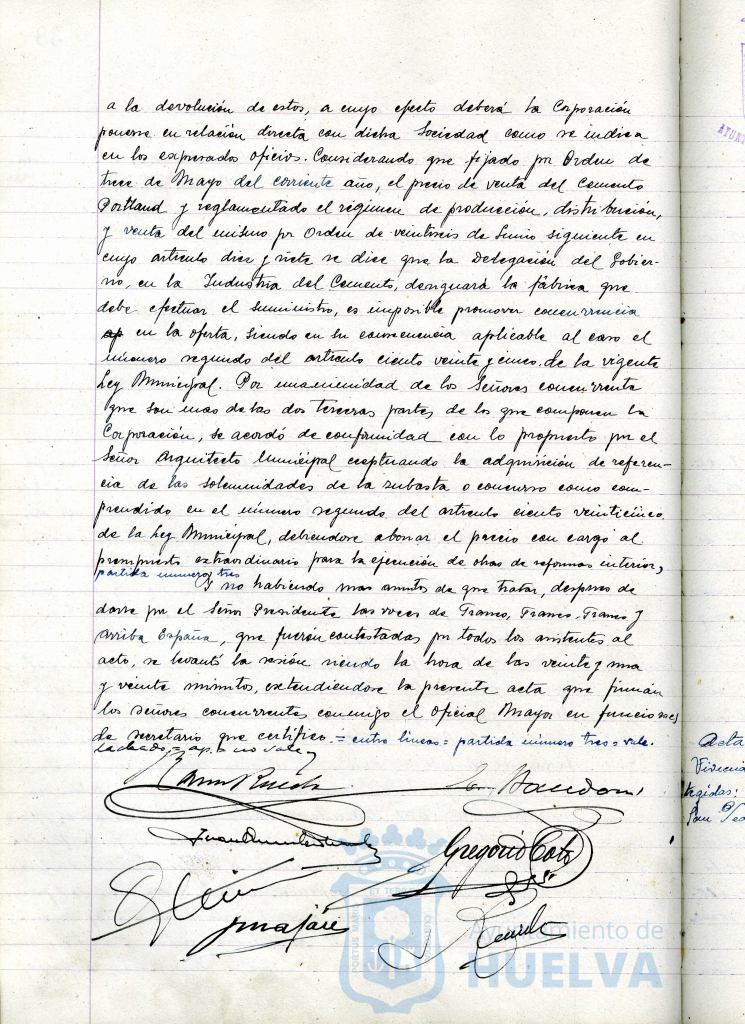 a la devolución de estos, a cuyo efecto deberá la Corporación
ponerse en relación directa con dicha Sociedad como se indica
en los expresados oficios. Considerando que fijado por Orden de
trece de Mayo del corriente año, el precio de venta del Cemento
Portland y reglamentado el régimen de producción, distribución,
y venta del mismo por Orden de veintiseis de Junio siguiente en
cuyo articulo diez y siete se dice que la Delegación del Gobier-
no, en la Industria del Cemento, designará la fábrica que
debe efectuar el suministro, es imposible promover concurrencia
ap en la oferta, siendo en su consecuencia aplicable al caso el
número segundo del articulo ciento veinte y cinco de la vigente
Ley Municipal. Por unanimidad de los Señores concurrentes
que son mas de las dos terceras partes de los que componen la
Corporación, se acordó de conformidad con lo propuesto por el
Señor Arquitecto Municipal exceptuando la adquisición de referen-
cia de las solemnidades de la subasta o concurso como com-
prendido en el número segundo del articulo ciento veinticinco
de la Ley Municipal, debiendose abonar el precio con cargo al
presupuesto extraordinario para la ejecución de obras de reformas interior,
partida numero tres
Y no habiendo mas asuntos de que tratar, despues de
darse por el Señor Presidente las voces de Franco, Franco, Franco y
Arriba España, que fuerón contestadas por todos los asistentes al
acto, se levantó la sesión siendo la hora de las veinte y una
y veinte minutos, extendiendose la presente acta que firman
los señores concurrentes conmigo el Oficial Mayor en funciones
de secretario que certifico.= entre lineas = partida número tres = vale.
tachado = ap. = no vale
Gregorio Coto
Acta
Vivienda
tegidas:
San
Ayuntamiento de
HUELVA